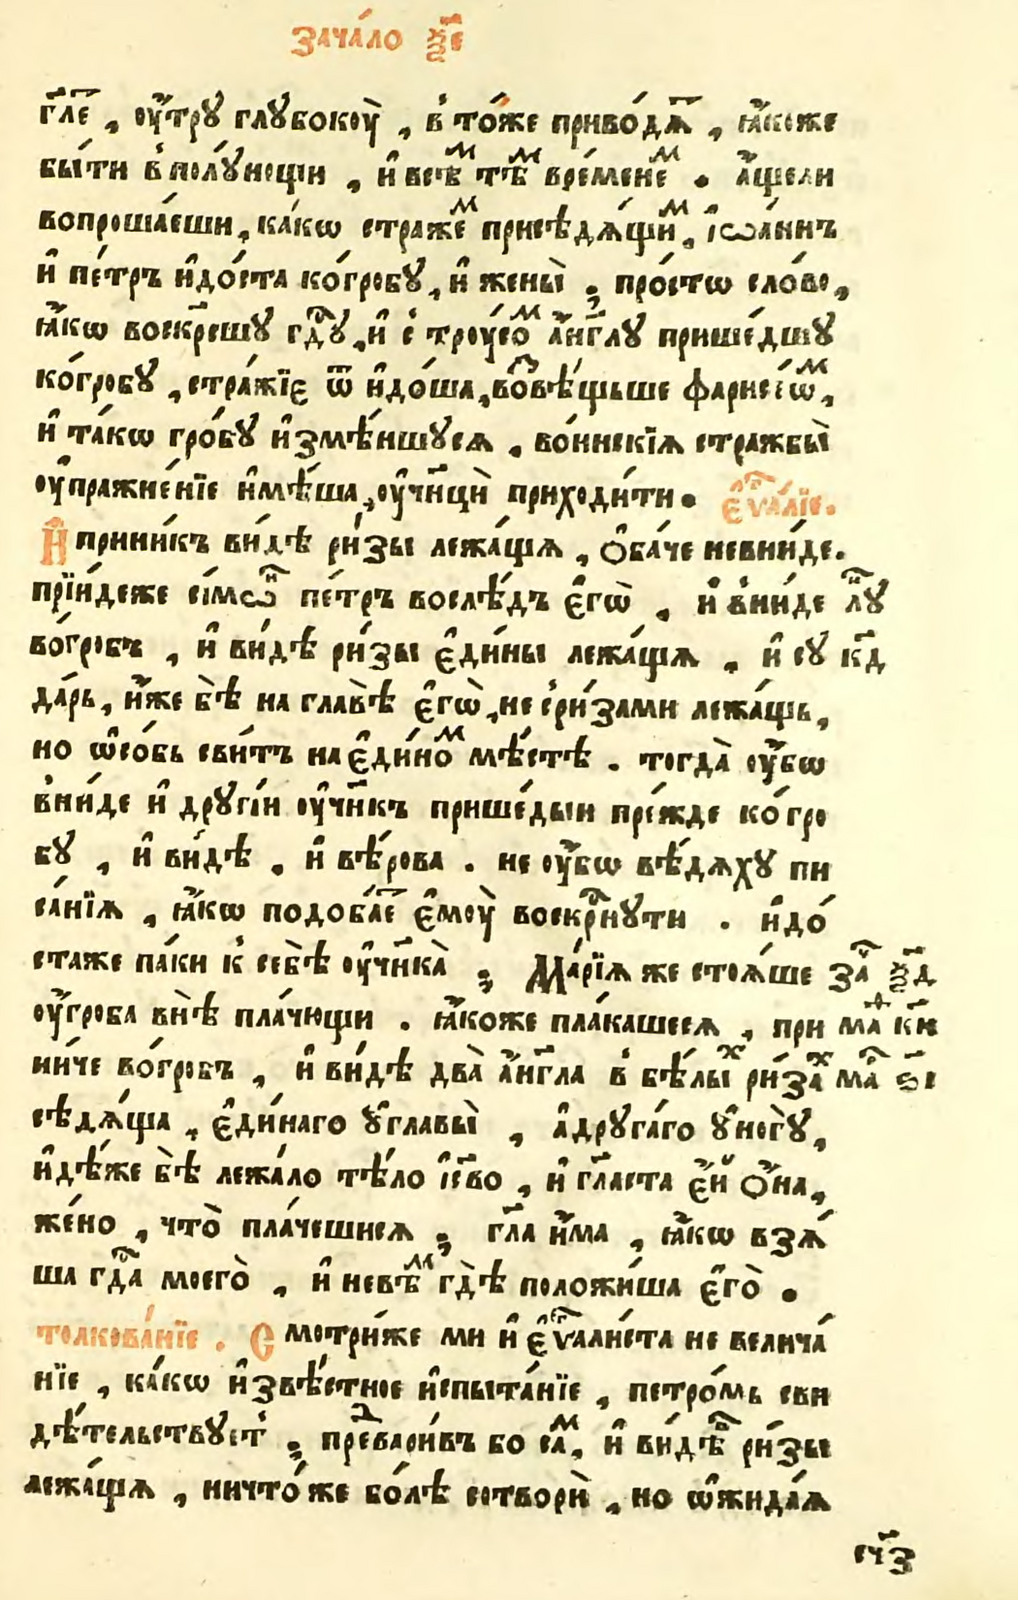 зача́ло ѯ҃е
гл҃е , оу҆́трꙋ глꙋбокоу̀ , в̾ то́же приво́дѧ , ꙗ҆́коже
бы́ти в̾полꙋ́нощи , и҆ всѣⷨ тѣⷨ вре́менеⷨ . а҆́щели
вопроша́еши , ка́кѡ стражеⷨ присѣдѧ́щиⷨ , і҆ѡа́ннъ
и҆ пе́тръ и҆до́ста ко́гробꙋ , и҆ жены̀ ; про́стѡ сло́во ,
ꙗ҆́кѡ воскр҃сшꙋ гд҃ꙋ , и҆ с̾ троу́соⷨ а҆́нг҃лꙋ прише́дшꙋ
ко́гробꙋ , стра́жїе ѿ и҆до́ша , воⷥвѣ́щьше фарисе́ѡⷨ ,
и҆ та́кѡ гро́бꙋ и҆змѣ́ншꙋсѧ , во́инскїѧ стражбы̀
оу҆пражне́нїе и҆мѣ́ша , оу҆чн҃цѝ приходи́ти . є҆ѵⷢ҇а́лїе .
И҆ прини́къ ви́дѣ ри́зы лежа́щѧ , ѻ҆ба́че невни́де .
прїи́деже сі́мѡⷩ пе́тръ вослѣ́дъ є҆гѡ̀ , и҆ вни́де
во́гробъ , и҆ ви́дѣ ри́зы є҆ди́ны лежа́щѧ , и҆ сꙋ
да́рь , и҆́же бѣ̀ на главѣ̀ є҆гѡ̀ , не с̾ри́зами лежа́щь ,
но ѡ҆со́бь сви́тъ на є҆ди́ноⷨ мѣ́стѣ . тогда̀ оу҆́бѡ
вни́де и҆ дрꙋгі́и оу҆чн҃къ прише́дыи пре́жде ко́гро
бꙋ , и҆ ви́дѣ , и҆ вѣ́рова . не оу҆́бѡ вѣ́дѧхꙋ пи
са́нїѧ , ꙗ҆́кѡ подоба́е є҆моу̀ воскр҃нꙋти . и҆до́
стаже па́ки к̾ себѣ̀ оу҆чн҃ка̀ ; Марі́ѧ же стоѧ́ше за҃ ѯ҃д
оу҆́гроба внѣ̀ пла́чющи . ꙗ҆́коже пла́кашесѧ , при
ниче во́гробъ , и҆ ви́дѣ два̀ а҆́нг҃ла в̾ бѣ́лыⷯ ри́заⷯ
сѣдѧ́ща , є҆ди́наго ꙋ҆главы̀ , а҆дрꙋга́го ꙋ҆ногꙋ̀ ,
и҆дѣ́же бѣ̀ лежа́ло тѣ́ло і҆с҃во , и҆ гл҃аста є҆́й ѻ҆́на ,
же́но , что̀ пла́чешисѧ ; гл҃а и҆́ма , ꙗ҆́кѡ взѧ́
ша гд҃а моего̀ , и҆ невѣⷨ гдѣ̀ положи́ша є҆го̀ .
толкова́нїе . Смотри́же ми и҆ є҆ѵⷢ҇али́ста не велича́
нїе , ка́кѡ и҆звѣ́стное и҆спыта́нїе , петро́мь сви
дѣ́тельствꙋет̾ , преⷣвари́въ бо саⷨ , и҆ ви́дѣⷡ ри́зы
лежа́щѧ , ничто́же бо́лѣ сотворѝ , но ѡ҆жида́ѧ
сч҃з